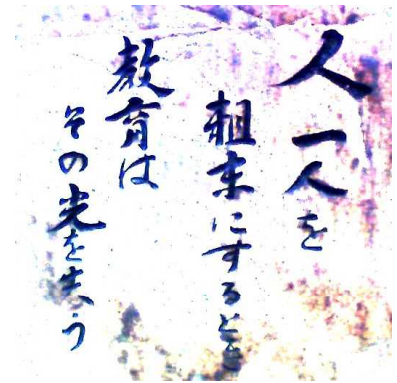 人一人を
粗末にするとき
教育は
その光を失う